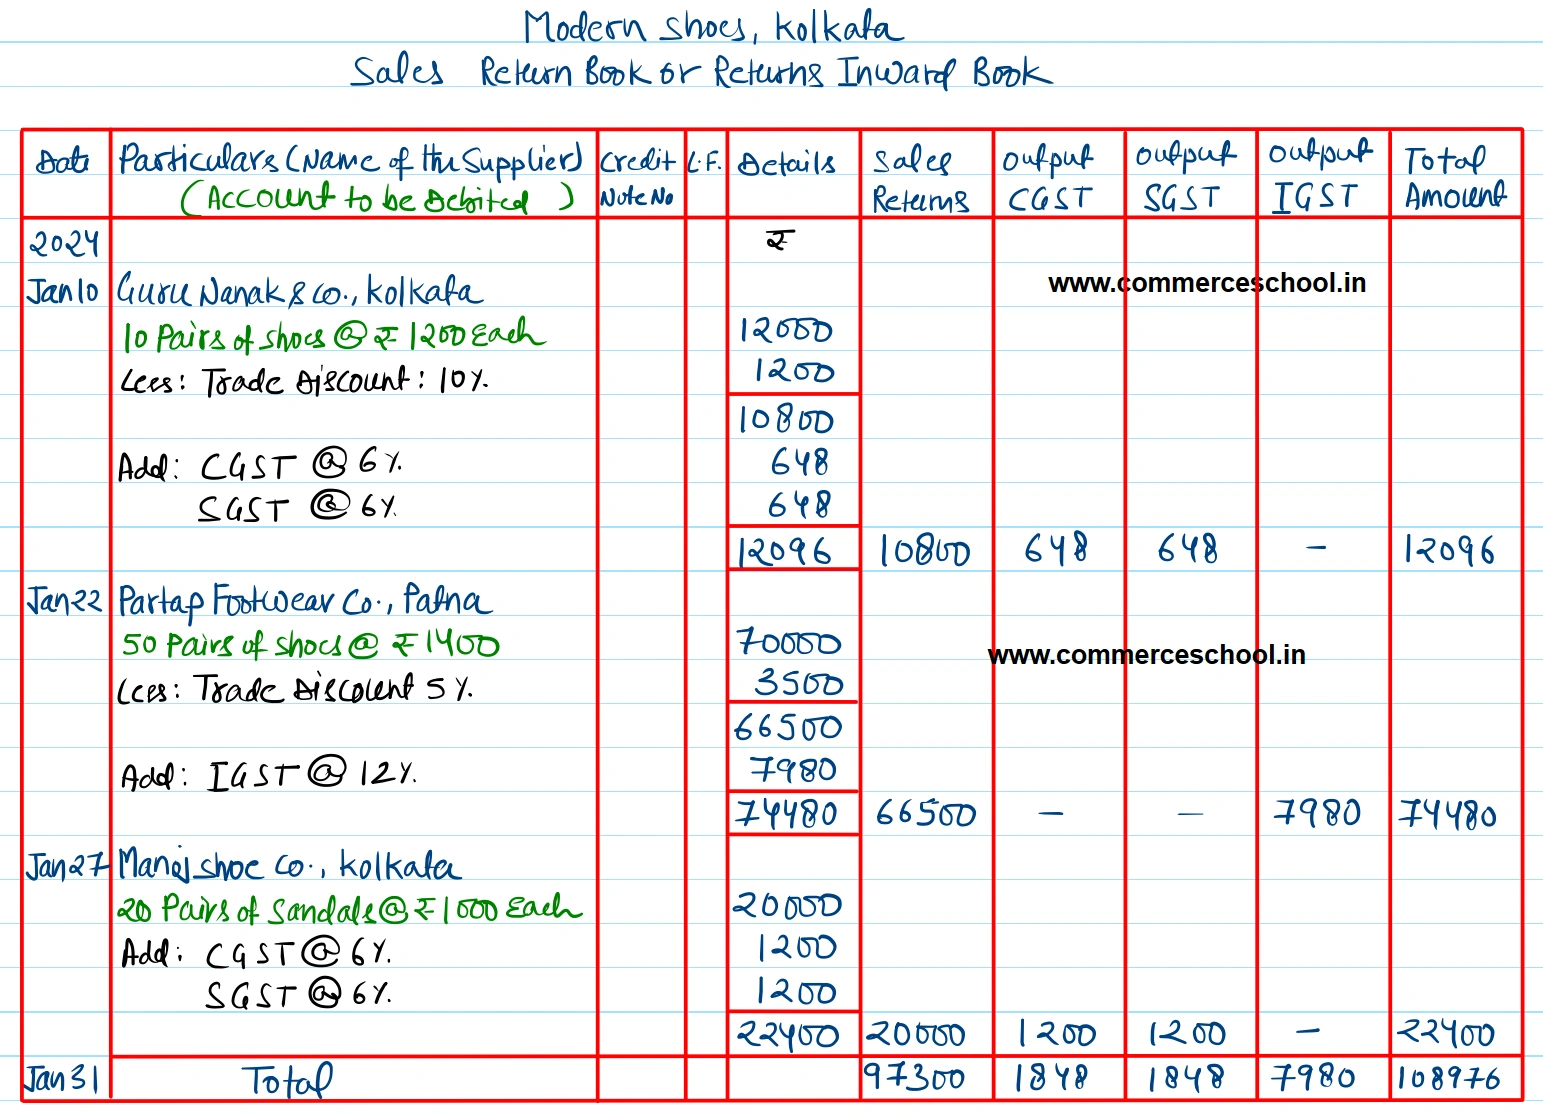 Modern Shoes, Kolkata
Sales Return Book or Returns Inward Book
Date Particulars (Name of the Supplier) Credit L.F. Details Sales Output Output Output Total
(Account to be Debited) Note No Returns CGST SGST IGST Amount
2024 ₹
www.commerceschool.in
Jan 10 Guru Nanak & Co., Kolkata
10 Pairs of shoes @ ₹ 1200 Each 12000
Less: Trade Discount: 10%. 1200
10800
Add: CGST @ 6%. 648
SGST @ 6%. 648
12096 10800 648 648 – 12096
Jan 22 Partap Footwear Co., Patna
50 Pairs of shoes @ ₹ 1400 70000
www.commerceschool.in
Less: Trade Discount 5%. 3500
66500
Add: IGST @ 12%. 7980
74480 66500 – – 7980 74480
Jan 27 Manoj shoe Co., Kolkata
20 Pairs of Sandals @ ₹ 1000 Each 20000
Add: CGST @ 6%. 1200
SGST @ 6%. 1200
22400 20000 1200 1200 – 22400
Jan 31 Total 97300 1848 1848 7980 108976